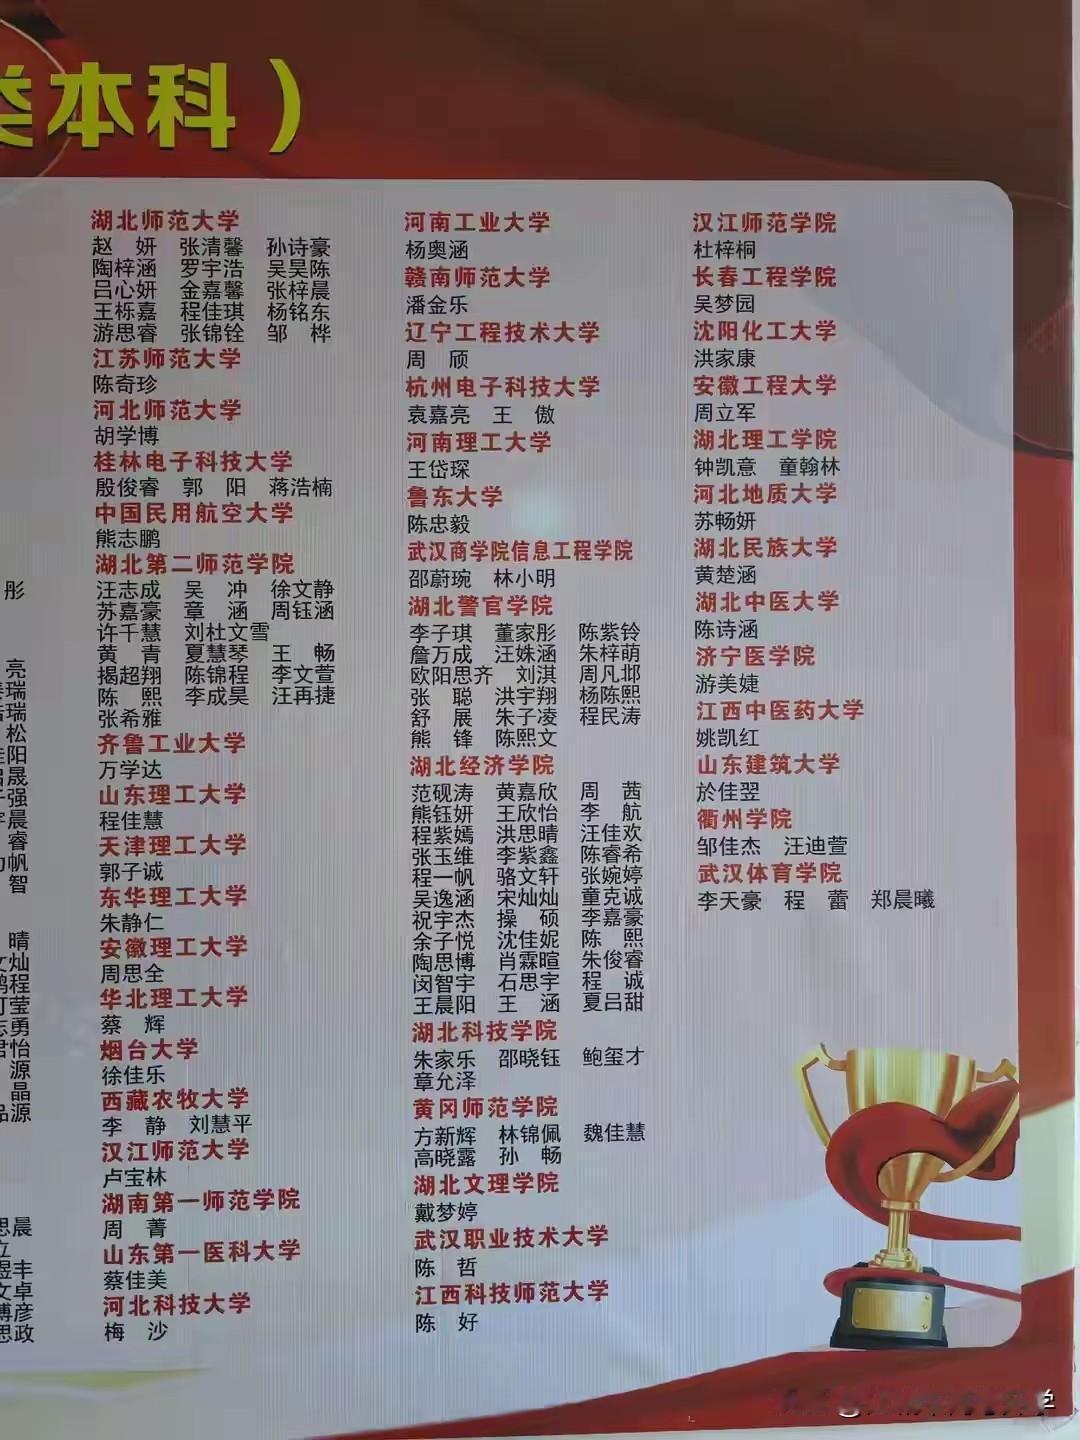 类本科）
彤
亮
瑞
瑞
松
阳
晟
强
晨
睿
帆
智
晴
灿
程
莹
勇
怡
源
晶
品源
思晨
立
煜丰
文卓
博彦
思政
湖北师范大学
赵　妍　张清馨　孙诗豪
陶梓涵　罗宇浩　吴昊陈
吕心妍　金嘉馨　张梓晨
王栎嘉　程佳琪　杨铭东
游思睿　张锦铨　邹　桦
江苏师范大学
陈奇珍
河北师范大学
胡学博
桂林电子科技大学
殷俊睿　郭　阳　蒋浩楠
中国民用航空大学
熊志鹏
湖北第二师范学院
汪志成　吴　冲　徐文静
苏嘉豪　章　涵　周钰涵
许千慧　刘杜文雪
黄　青　夏慧琴　王　畅
揭超翔　陈锦程　李文萱
陈　熙　李成昊　汪再捷
张希雅
齐鲁工业大学
万学达
山东理工大学
程佳慧
天津理工大学
郭子诚
东华理工大学
朱静仁
安徽理工大学
周思全
华北理工大学
蔡　辉
烟台大学
徐佳乐
西藏农牧大学
李　静　刘慧平
汉江师范大学
卢宝林
湖南第一师范学院
周　菁
山东第一医科大学
蔡佳美
河北科技大学
梅　沙
河南工业大学
杨奥涵
赣南师范大学
潘金乐
辽宁工程技术大学
周　颀
杭州电子科技大学
袁嘉亮　王　傲
河南理工大学
王岱琛
鲁东大学
陈忠毅
武汉商学院信息工程学院
邵蔚琬　林小明
湖北警官学院
李子琪　董家彤　陈紫铃
詹万成　汪姝涵　朱梓萌
欧阳思齐　刘淇　周凡邶
张　聪　洪宇翔　杨陈熙
舒　展　朱子凌　程民涛
熊　锋　陈熙文
湖北经济学院
范砚涛　黄嘉欣　周　茜
熊钰妍　王欣怡　李　航
程紫嫣　洪思晴　汪佳欢
张玉维　李紫鑫　陈睿希
程一帆　骆文轩　张婉婷
吴逸涵　宋灿灿　童克诚
祝宇杰　操　硕　李嘉豪
余子悦　沈佳妮　陈　熙
陶思博　肖霖暄　朱俊睿
闵智宇　石思宇　程　诚
王晨阳　王　涵　夏吕甜
湖北科技学院
朱家乐　邵晓钰　鲍玺才
章允泽
黄冈师范学院
方新辉　林锦佩　魏佳慧
高晓露　孙　畅
湖北文理学院
戴梦婷
武汉职业技术大学
陈　哲
江西科技师范大学
陈　好
汉江师范学院
杜梓桐
长春工程学院
吴梦园
沈阳化工大学
洪家康
安徽工程大学
周立军
湖北理工学院
钟凯意　童翰林
河北地质大学
苏畅妍
湖北民族大学
黄楚涵
湖北中医大学
陈诗涵
济宁医学院
游美婕
江西中医药大学
姚凯红
山东建筑大学
於佳翌
衢州学院
邹佳杰　汪迪萱
武汉体育学院
李天豪　程　蕾　郑晨曦